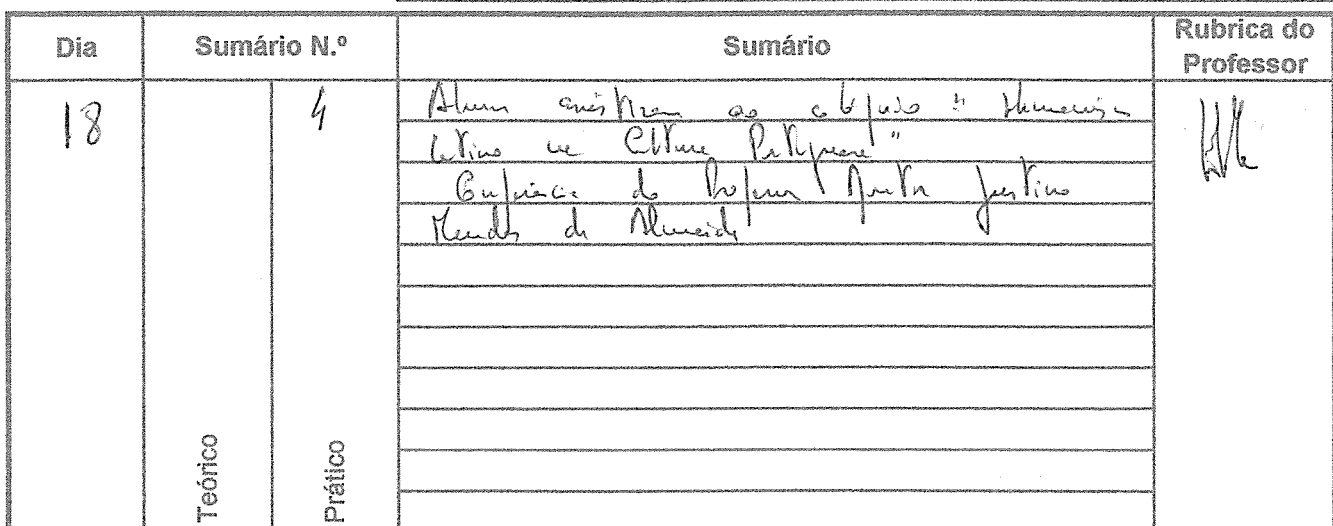 Dia Sumário N.º Sumário Rubrica do Professor
18 4 Alunos assistiram ao colóquio "Humanismo
Latino na Cultura Portuguesa"
Conferência do Professor Doutor Justino
Mendes de Almeida
Teórico Prático